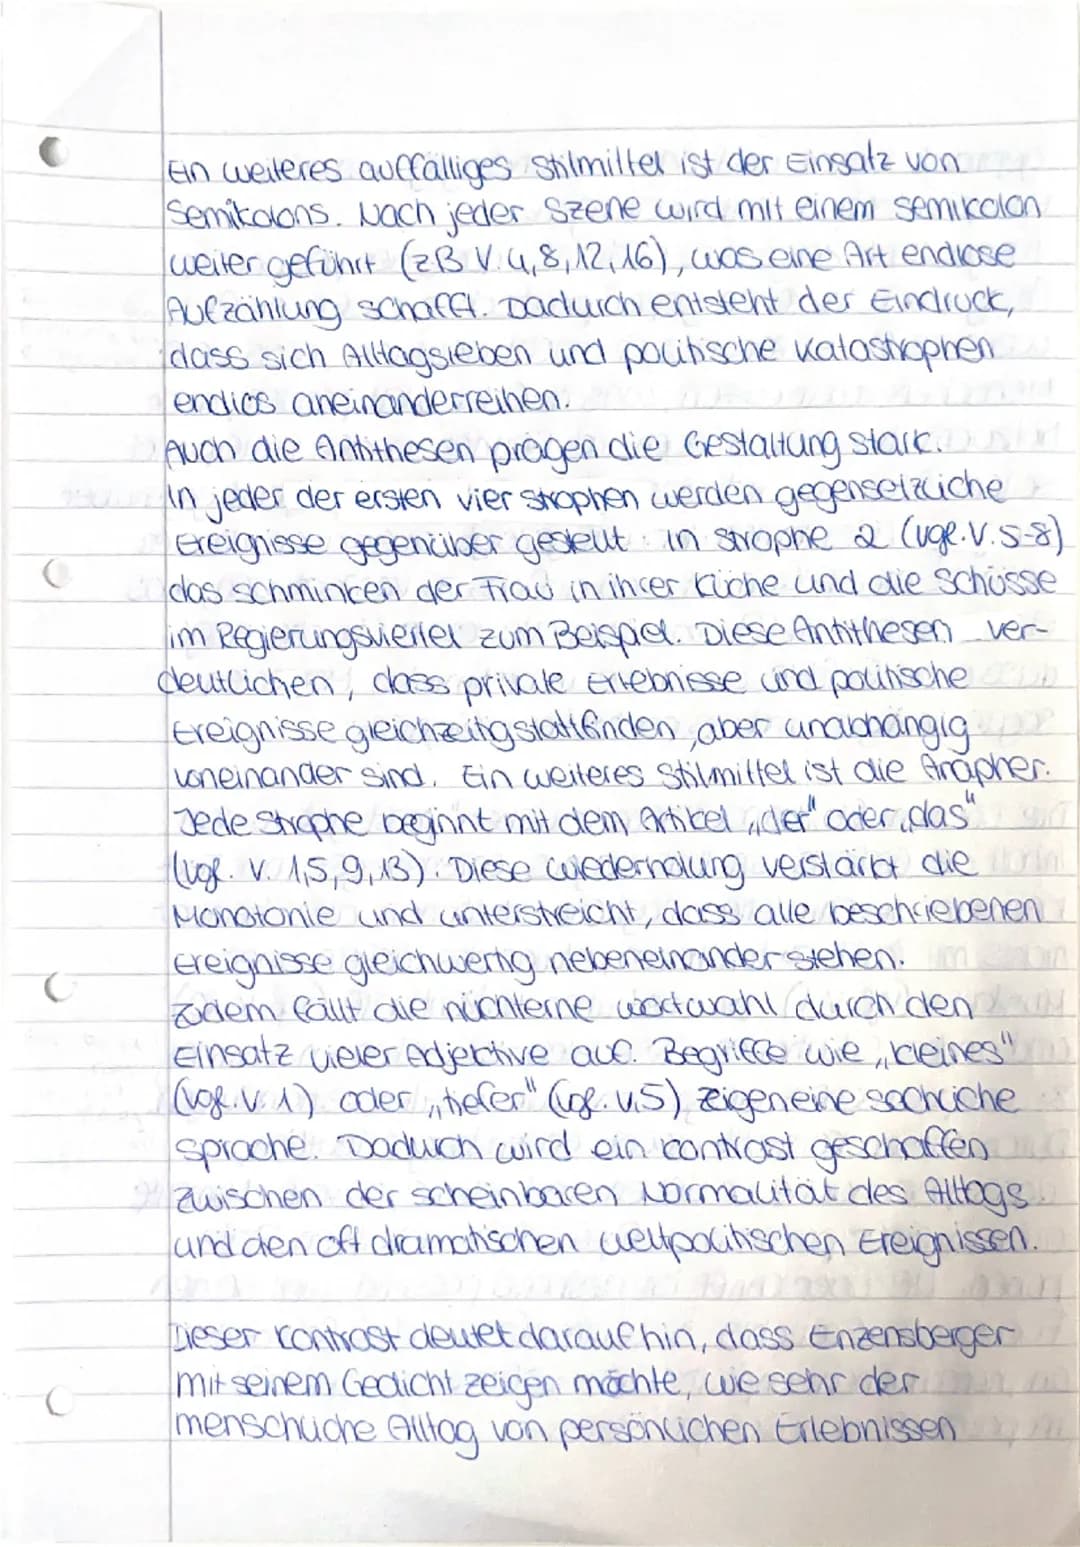 Ein weiteres auffälliges Stilmittel ist der Einsatz von
Semikolons. Nach jeder Szene wird mit einem Semikolon
weiter geführt (zB V. 4,8,12,16), was eine Art endlose
Aufzählung schafft. Dadurch entsteht der Eindruck,
dass sich Alltagsleben und politische Katastrophen
endlos aneinanderreihen.
Auch die Antithesen prägen die Gestaltung stark.
In jeder der ersten vier Strophen werden gegensetzliche
Ereignisse gegenüber gestellt: in Strophe 2 (vgl. V. 5-8)
das schminken der Frau in ihrer Küche und die Schüsse
im Regierungsviertel zum Beispiel. Diese Antithesen ver-
deutlichen, dass private Erlebnisse und politische
Ereignisse gleichzeitig stattfinden, aber unabhängig
voneinander sind. Ein weiteres Stilmittel ist die Anapher.
Jede Strophe beginnt mit dem Artikel „der" oder „das"
(vgl. V. 1,5,9,13). Diese Wiederholung verstärkt die
Monotonie und unterstreicht, dass alle beschriebenen
Ereignisse gleichwertig nebeneinander stehen.
Zudem fällt die nüchterne Wortwahl durch den
Einsatz vieler Adjektive auf. Begriffe wie „kleines"
(vgl. V. 1) oder „tiefer" (vgl. V. 5) zeigen eine sachliche
Sprache. Daduch wird ein contrast geschaffen
zwischen der scheinbaren Normalität des Alltags
und den oft dramatischen weltpolitischen Ereignissen.
Dieser Kontrast deutet darauf hin, dass Enzensberger
mit seinem Gedicht zeigen möchte, wie sehr der
menschliche Alltag von persönlichen Erlebnissen